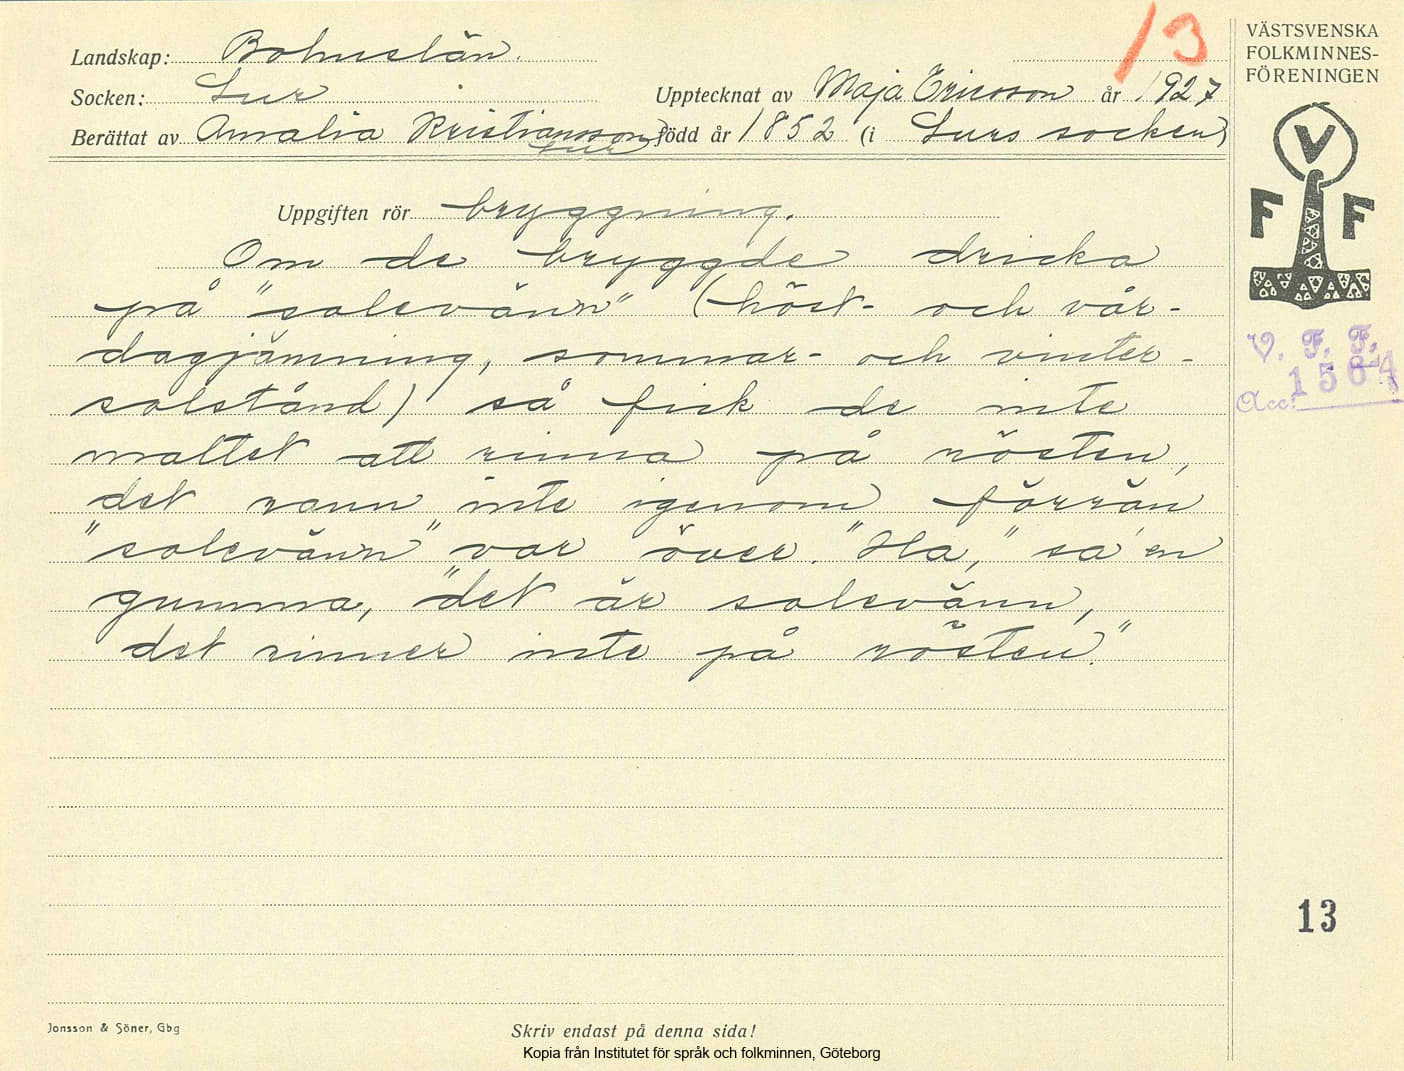 13
VÄSTSVENSKA
FOLKMINNES-
FÖRENINGEN
Landskap: Bohuslän.
Socken: Lur
Upptecknat av Maja Ericsson år 1927
Berättat av Amalia Kristiansson född år 1852 (i Lurs socken)
Lur
V
F F
Uppgiften rör bryggning.
Om de bryggde dricka
på "solevänn" (höst- och vår-
dagjämning, sommar- och vinter-
solstånd) så fick de inte
maltet att rinna på rösten,
det rann inte igenom förrän
"solevänn" var över. "Ha," sa' en
gumma, "det är solevänn,
det rinner inte på rösten."
V. F. F.
Acc: 1564
13
Jonsson & Söner, Gbg
Skriv endast på denna sida!
Kopia från Institutet för språk och folkminnen, Göteborg